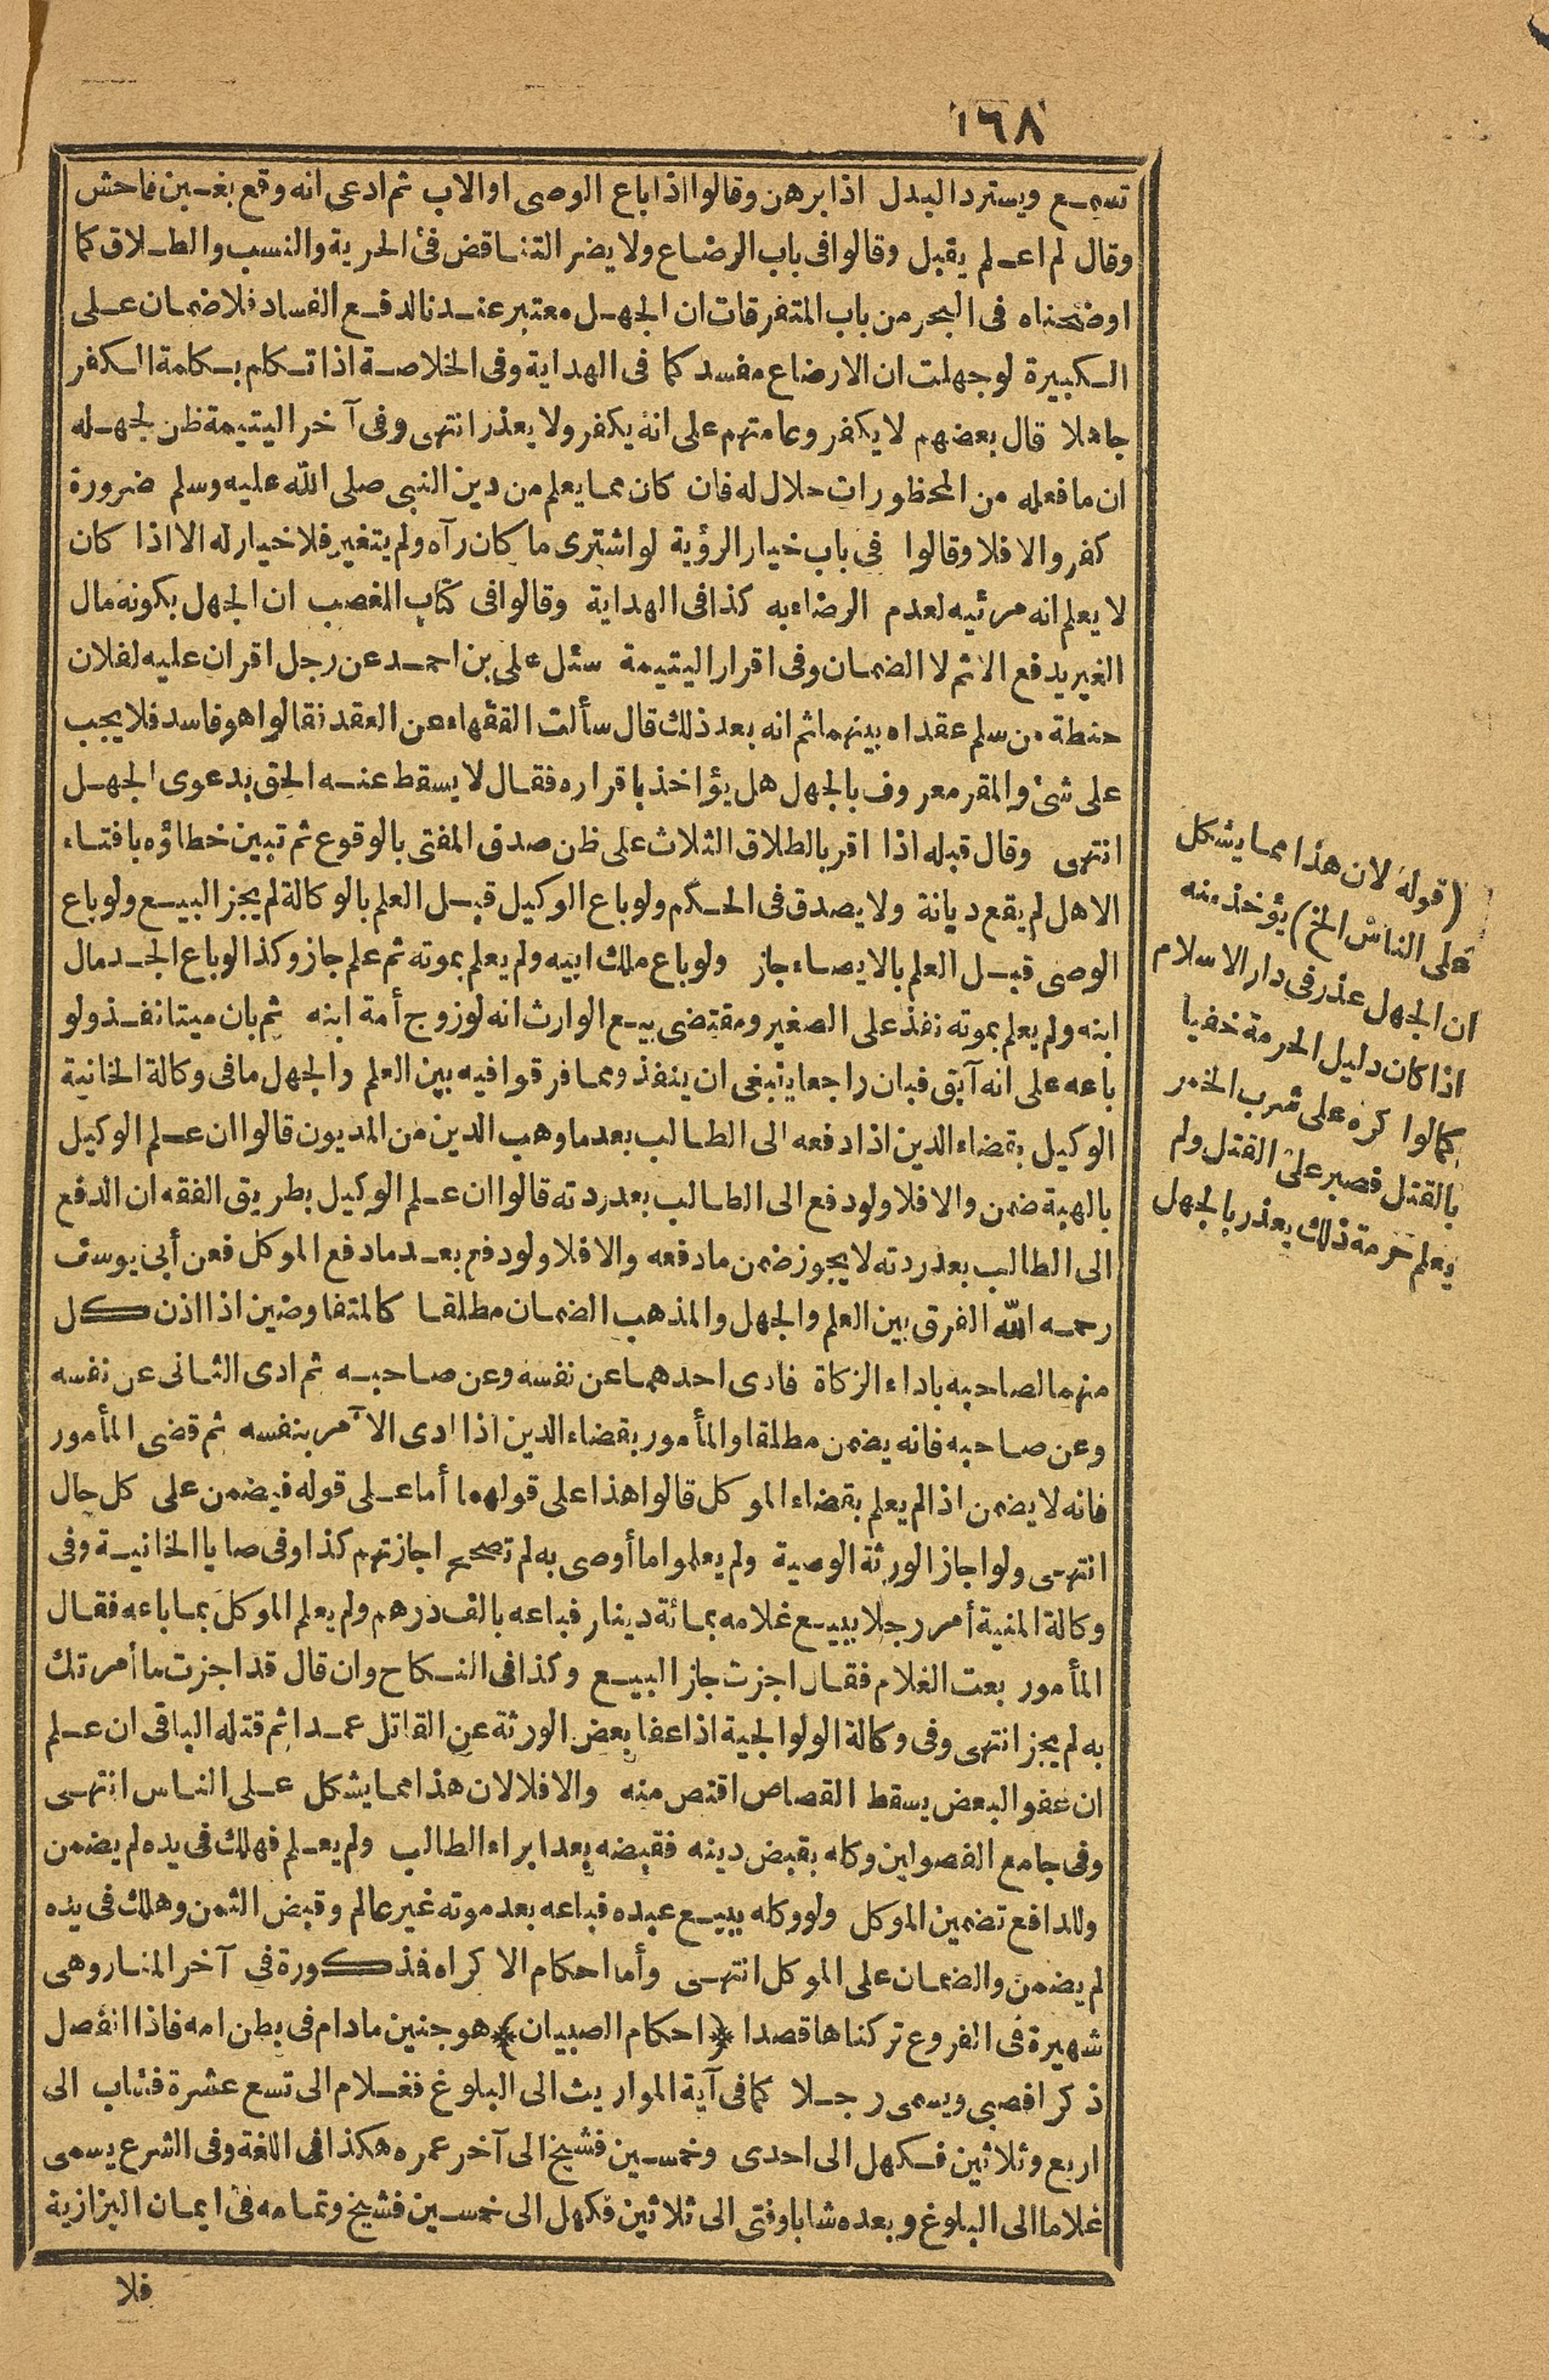 ١٦٨
تسمع ويسترد البدل اذا برهن وقالوا اذا باع الوصى او الاب ثم ادعى انه وقع بغبن فاحش
وقال لم اعلم يقبل وقالوا فى باب الرضاع ولا يضر التناقض فى الحرية والنسب والطلاق كما
اوضحناه فى البحر من باب المتفرقات ان الجهل معتبر عندنا لدفع الفساد فلا ضمان على
الكبيرة لو جهلت ان الارضاع مفسد كما فى الهداية وفى الخلاصة اذا تكلم بكلمة الكفر
جاهلا قال بعضهم لا يكفر وعامتهم على انه يكفر ولا يعذر انتهى وفى آخر اليتيمة ظن لجهله
ان ما فعله من المحظورات حلال له فان كان مما يعلم من دين النبى صلى الله عليه وسلم ضرورة
كفر والا فلا وقالوا فى باب خيار الرؤية لو اشترى ما كان رآه ولم يتغير فلا خيار له الا اذا كان
لا يعلم انه مرئيه لعدم الرضاء به كذا فى الهداية وقالوا فى كتاب الغصب ان الجهل بكونه مال
الغير يدفع الاثم لا الضمان وفى اقرار اليتيمة سئل على بن احمد عن رجل اقر ان عليه لفلان
حنطة من سلم عقداه بينهما ثم انه بعد ذلك قال سألت الفقهاء عن العقد فقالوا هو فاسد فلا يجب
على شئ والمقر معروف بالجهل هل يؤاخذ باقراره فقال لا يسقط عنه الحق بدعوى الجهل
انتهى وقال قبله اذا اقر بالطلاق الثلاث على ظن صدق المفتى بالوقوع ثم تبين خطاؤه بافتاء
الاهل لم يقع ديانة ولا يصدق فى الحكم ولو باع الوكيل قبل العلم بالوكالة لم يجز البيع ولو باع
الوصى قبل العلم بالايصاء جاز ولو باع ملك ابيه ولم يعلم بموته ثم علم جاز وكذا لو باع الجد مال
ابنه ولم يعلم بموته نفذ على الصغير ومقتضى بيع الوارث انه لو زوج أمة ابنه ثم بان ميتا نفذ ولو
باعه على انه آبق فبان راجعا ينبغى ان ينفذ ومما فرقوا فيه بين العلم والجهل ما فى وكالة الخانية
الوكيل بقضاء الدين اذا دفعه الى الطالب بعد ما وهب الدين من المديون قالوا ان علم الوكيل
بالهبة ضمن والا فلا ولو دفع الى الطالب بعد ردته قالوا ان علم الوكيل بطريق الفقه ان الدفع
الى الطالب بعد ردته لا يجوز ضمن ما دفعه والا فلا ولو دفع بعد ما دفع الموكل فعن أبى يوسف
رحمه الله الفرق بين العلم والجهل والمذهب الضمان مطلقا كالمتفاوضين اذا اذن كل
منهما لصاحبه باداء الزكاة فادى احدهما عن نفسه وعن صاحبه ثم ادى الثانى عن نفسه
وعن صاحبه فانه يضمن مطلقا والمأمور بقضاء الدين اذا ادى الآمر بنفسه ثم قضى المأمور
فانه لا يضمن اذا لم يعلم بقضاء الموكل قالوا هذا على قولهما أما على قوله فيضمن على كل حال
انتهى ولو اجاز الورثة الوصية ولم يعلموا ما أوصى به لم تصح اجازتهم كذا وفى صايا الخانية وفى
وكالة المنية أمر رجلا ببيع غلامه بمائة دينار فباعه بالف درهم ولم يعلم الموكل بما باعه فقال
المأمور بعت الغلام فقال اجزت جاز البيع وكذا فى النكاح وان قال قد اجزت ما أمرتك
به لم يجز انتهى وفى وكالة الولوالجية اذا عفا بعض الورثة عن القاتل عمدا ثم قتله الباقى ان علم
ان عفو البعض يسقط القصاص اقتص منه والا فلا لان هذا مما يشكل على الناس انتهى
وفى جامع الفصولين وكله بقبض دينه فقبضه بعد ابراء الطالب ولم يعلم فهلك فى يده لم يضمن
وللدافع تضمين الموكل ولو وكله ببيع عبده فباعه بعد موته غير عالم وقبض الثمن وهلك فى يده
لم يضمن والضمان على الموكل انتهى وأما احكام الاكراه فذكورة فى آخر المنار وهى
شهيرة فى الفروع تركناها قصدا ﴿احكام الصبيان﴾ هو جنين ما دام فى بطن امه فاذا انفصل
ذكرا فصبى ويسمى رجلا كما فى آية المواريث الى البلوغ فغلام الى تسع عشرة فشاب الى
اربع وثلاثين فكهل الى احدى وخمسين فشيخ الى آخر عمره هكذا فى اللغة وفى الشرع يسمى
غلاما الى البلوغ وبعده شابا وفتى الى ثلاثين فكهل الى خمسين فشيخ وتمامه فى ايمان البزازية
فلا
(قوله لان هذا مما يشكل
على الناس الخ) يؤخذ منه
ان الجهل عذر فى دار الاسلام
اذا كان دليل الحرمة خفيا
كما لو اكره على شرب الخمر
بالقتل فصبر على القتل ولم
يعلم حرمة ذلك يعذر بالجهل